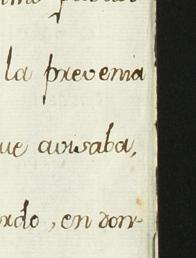 la prevenia
ue avisaba,
ado, en don-